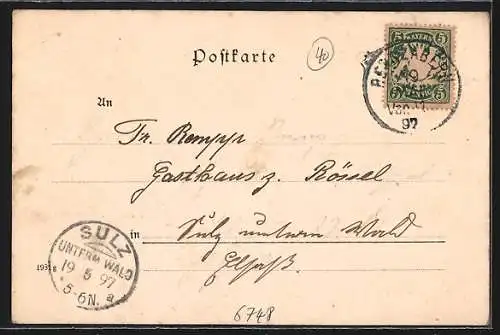 Postkarte
40
5 BAYERN 5
19
VOR.
97
An
Fr. Rempp
Gasthaus z. Rössel
in Sulz unterm Wald
Elsaß.
SULZ
UNTERM WALD
19 5 97
5-6N. a
6748